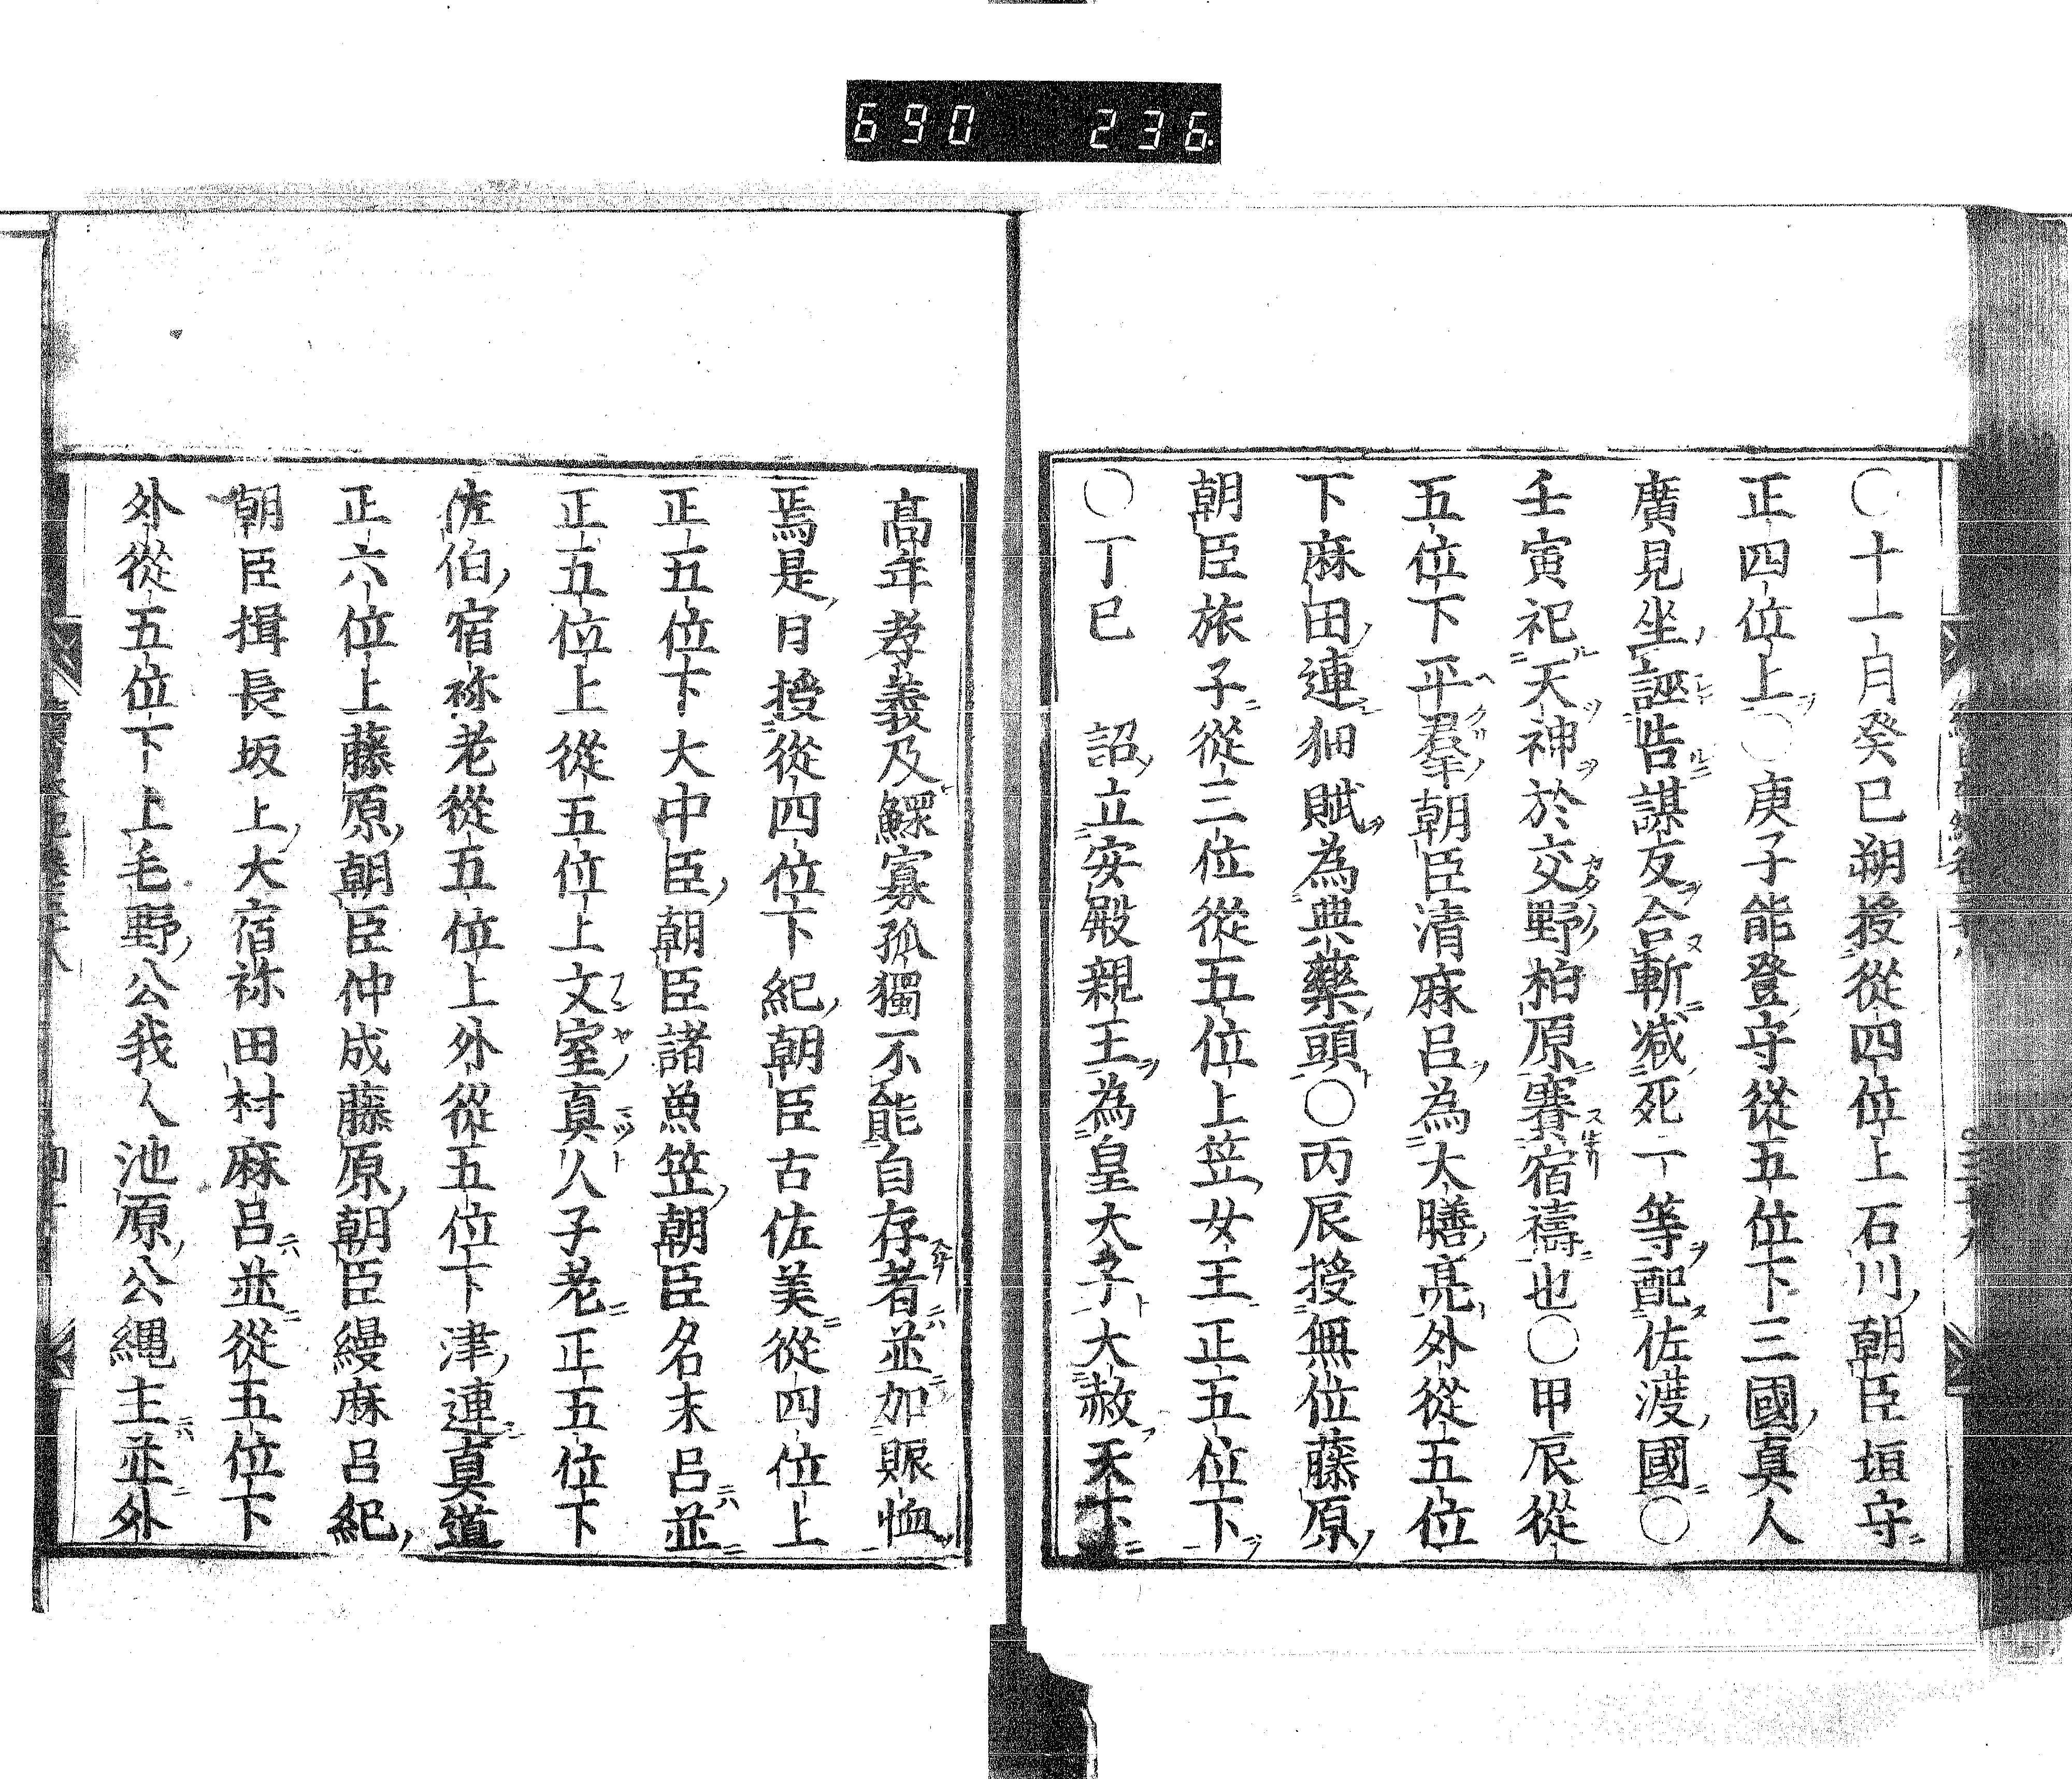 690 236
〇十一月癸巳朔授從四位上石川朝臣垣守
正四位上〇庚子能登守從五位下三國真人
廣見坐誣告謀反合斬減死一等配佐渡國〇
壬寅祀天神於交野柏原賽宿禱也〇甲辰從
五位下平羣朝臣清麻呂為大膳亮外從五位
下麻田連畑賦為典藥頭〇丙辰授無位藤原
朝臣旅子從三位從五位上笠女王正五位下
〇丁巳 詔立安殿親王為皇大子大赦天下
高年孝義及鰥寡孤獨不能自存者並加賑恤
焉是日授從四位下紀朝臣古佐美從四位上
正五位下大中臣朝臣諸魚笠朝臣名末呂並
正五位上從五位上文室真人子老正五位下
佐伯宿祢老從五位上外從五位下津連真道
正六位上藤原朝臣仲成藤原朝臣縵麻呂紀
朝臣揖長坂上大宿祢田村麻呂並從五位下
外從五位下上毛野公我人池原公縄主並外